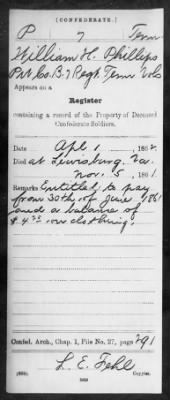 (CONFEDERATE.)
P 7 Tenn
William H. Phillips
Pvt Co. B. 7 Regt Tenn Vols
Appears on a
Register
containing a record of the Property of Deceased
Confederate Soldiers.
Date Apl 1, 1862.
Died at Lewisburg, Va.
Nov. 5, 1861
Remarks Entitled to pay
from 30th of June 1861
and a balance of
on clothing.
Confed. Arch., Chap. 1, File No. 27, page 291
L. E. Fehl
Copyist.